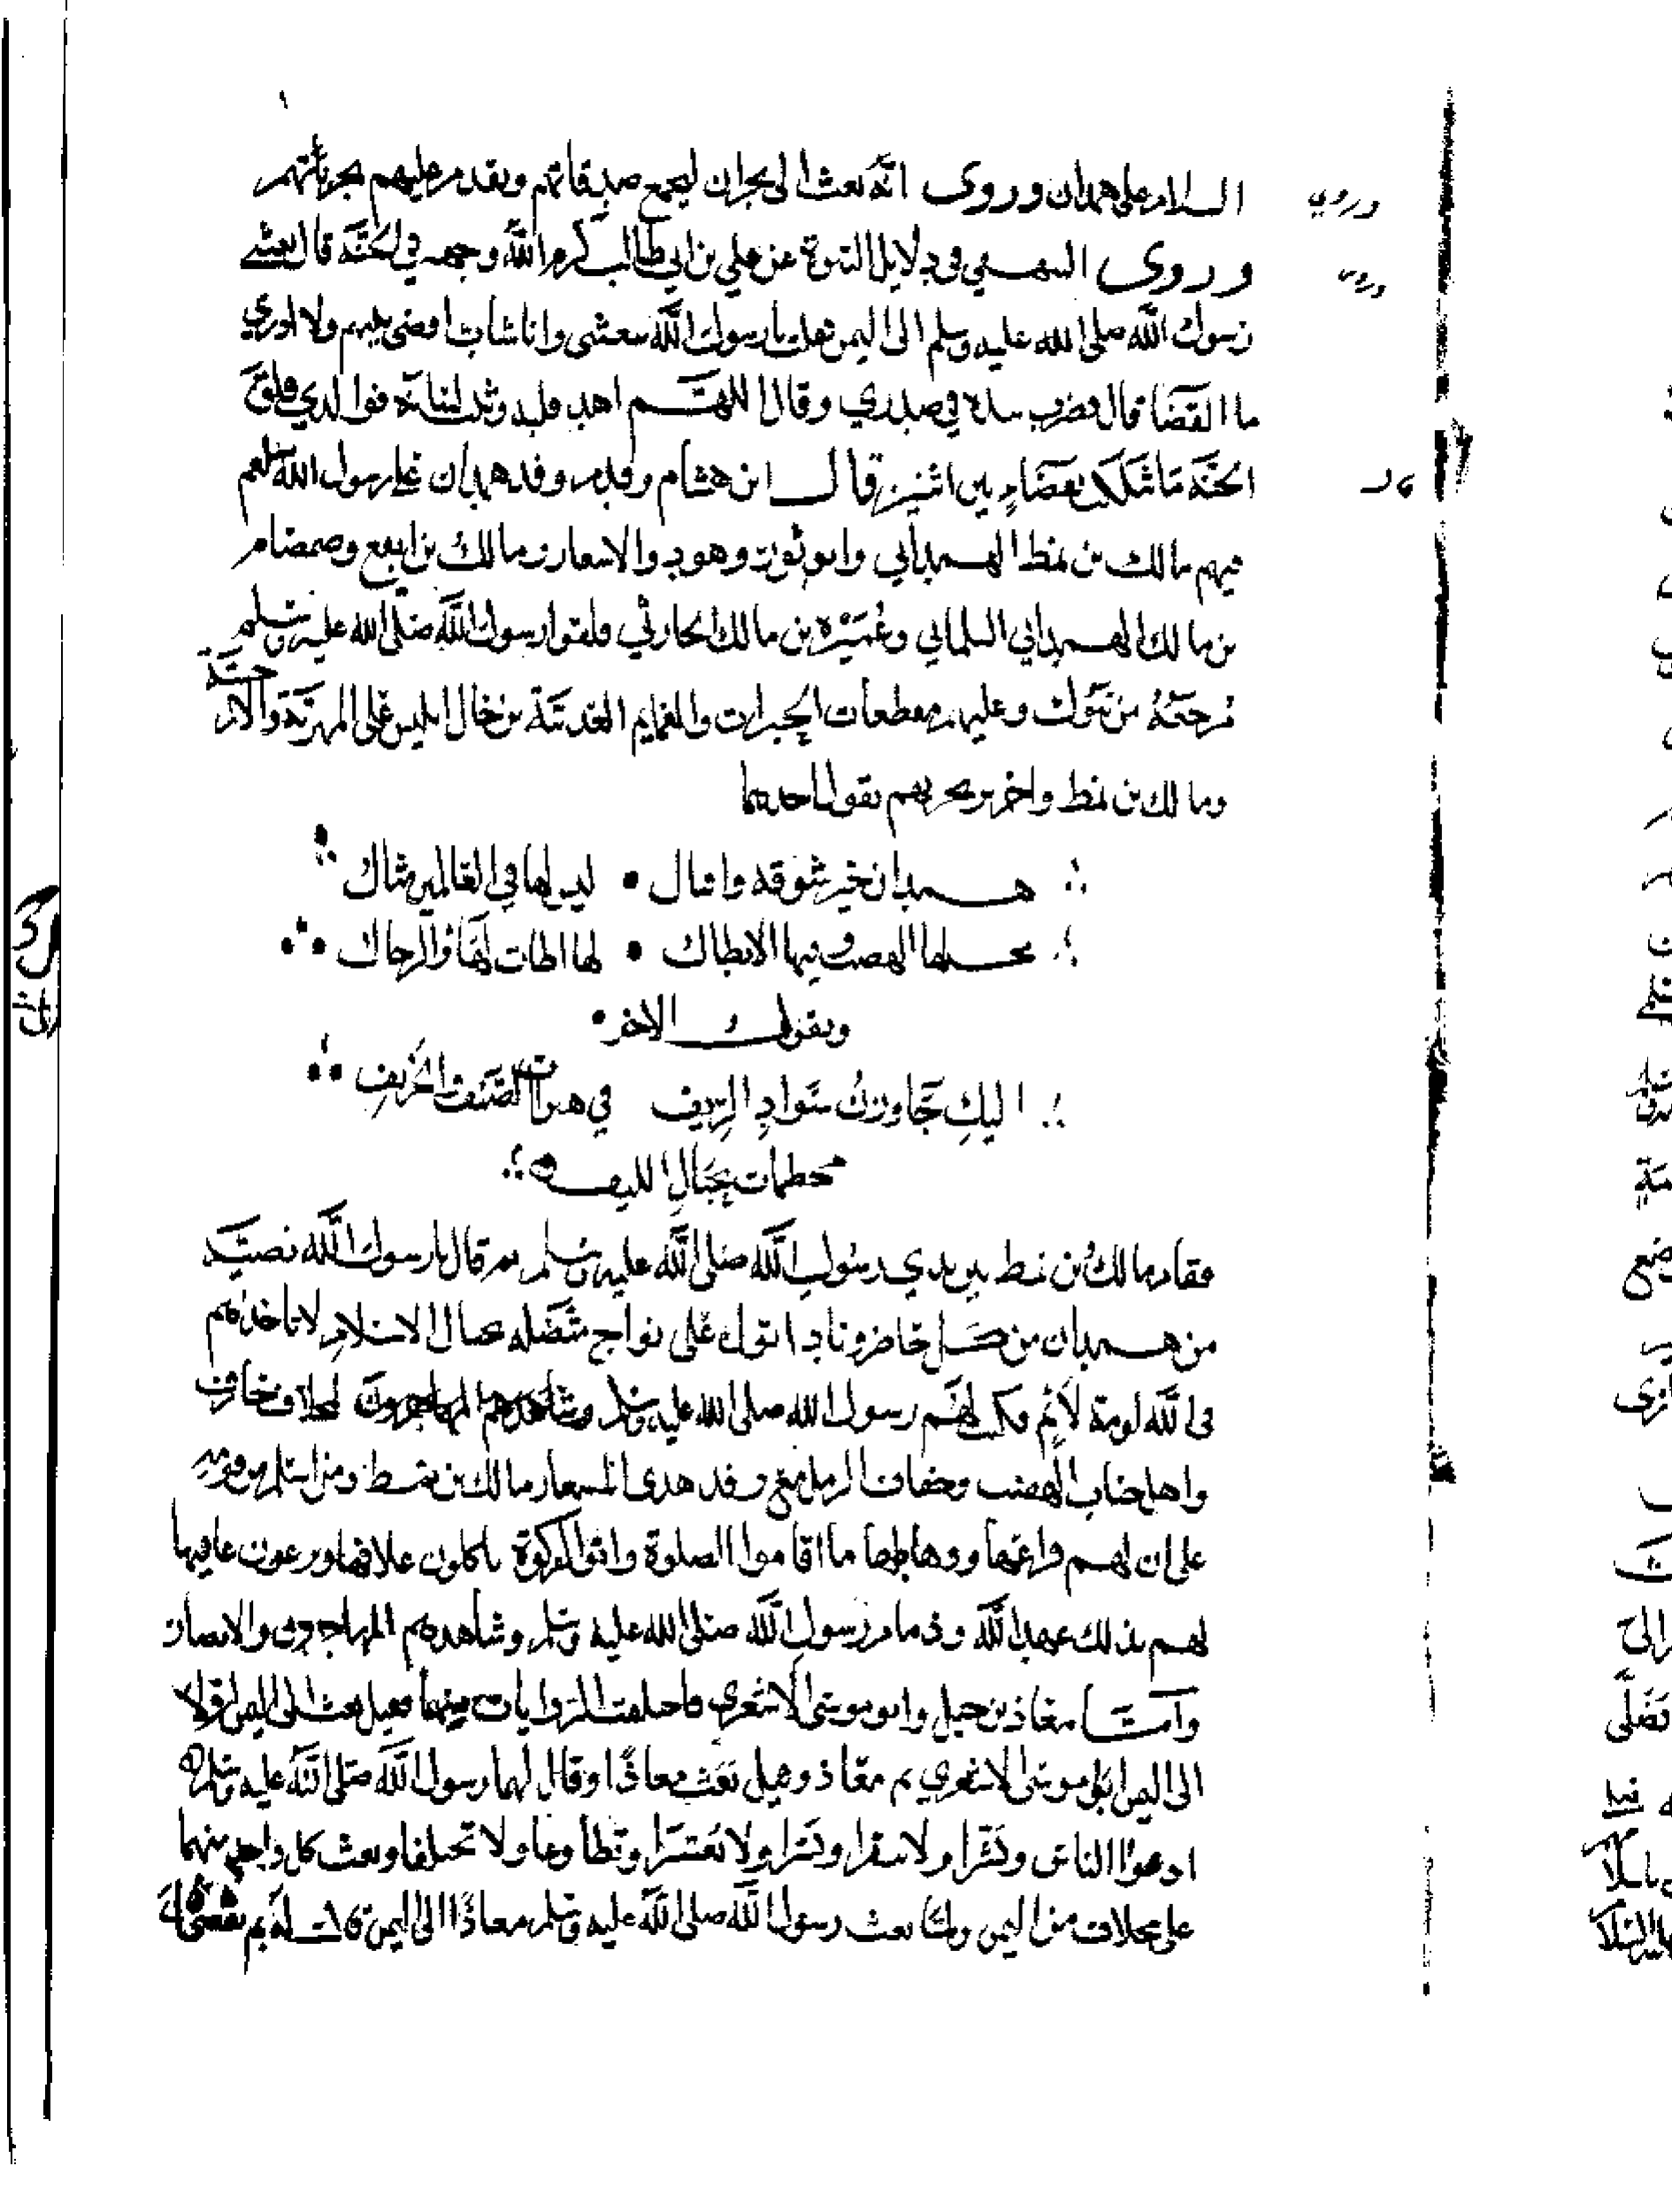 السلام على همدان وروى انه بعث الى نجران ليجمع صدقاتهم ويقدم عليهم بجزيتهم
وروي
وروى البيهقي في دلايل النبوة عن علي بن ابي طالب كرم الله وجهه في الجنة قال بعثني
وروى
رسول الله صلى الله عليه وسلم الى اليمن فقلت يا رسول الله تبعثني وانا شاب اقضي بينهم ولا ادري
ما القضا قال فضرب بيده في صدري وقال اللهم اهد قلبه وثبت لسانه فوالذي فلق
الحبة ما شككت بقضاء بين اثنين قال ابن هشام وقدم وفد همدان على رسول الله صلعم
قال
فيهم مالك بن نمط الهمداني وابو ثور وهو ذو الاسعار ومالك بن ايفع وصمضام
بن مالك الهمداني السلماني وعميرة بن مالك الحارثي فلقوا رسول الله صلى الله عليه وسلم
مرجعه من تبوك وعليهم مقطعات الحبرات والعمايم العدنية على المهرية والارحبية
ومالك بن نمط واخر يرتجز بهم يقول احدهما
همدان خير سوقة واقيال • ليس لها في العالمين مثال
محلها الهضب ومنها الابطال • لها اطابات لها واكال
ويقول الاخر
اليك جاوزن سواد الريف في هبوات الصيف والخريف
مخطمات بحبال الليف
فقام مالك بن نمط بين يدي رسول الله صلى الله عليه وسلم ثم قال يا رسول الله نصية
من همدان من كل حاضر وباد اتوك على نواج متصلة بحبال الاسلام لا تاخذهم
في الله لومة لائم فكتب لهم رسول الله صلى الله عليه وسلم لمخلاف خارف
واهل جناب الهضب وحفاف الرمل مع وفد هدى المسعار مالك بن نمط ومن اسلم من قومه
على ان لهم فراعها ووهاطها ما اقاموا الصلوة واتوا الزكوة ياكلون علافها ويرعون عافيها
لهم بذلك عهد الله وذمام رسول الله صلى الله عليه وسلم وشاهدهم المهاجرون والانصار
واما معاذ بن جبل وابو موسى الاشعري فاختلفت الروايات فيهما فقيل بعث الى اليمن اولا
الى اليمن ابو موسى الاشعري ثم معاذ وقيل بعث معاذا وقال لهما رسول الله صلى الله عليه وسلم
ادعوا الناس وبشرا ولا تنفرا ويسرا ولا تعسرا وتطاوعا ولا تختلفا وبعث كل واحد منهما
على مخلاف من اليمن ولما بعث رسول الله صلى الله عليه وسلم معاذا الى اليمن قال له بم تقضي قال